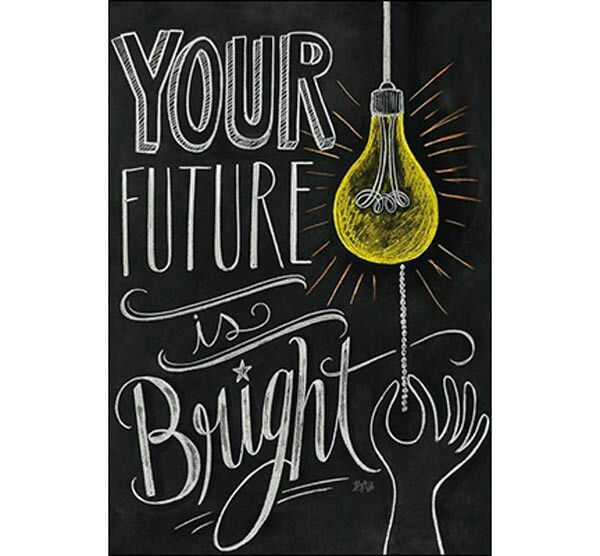 YOUR
FUTURE
is
Bright